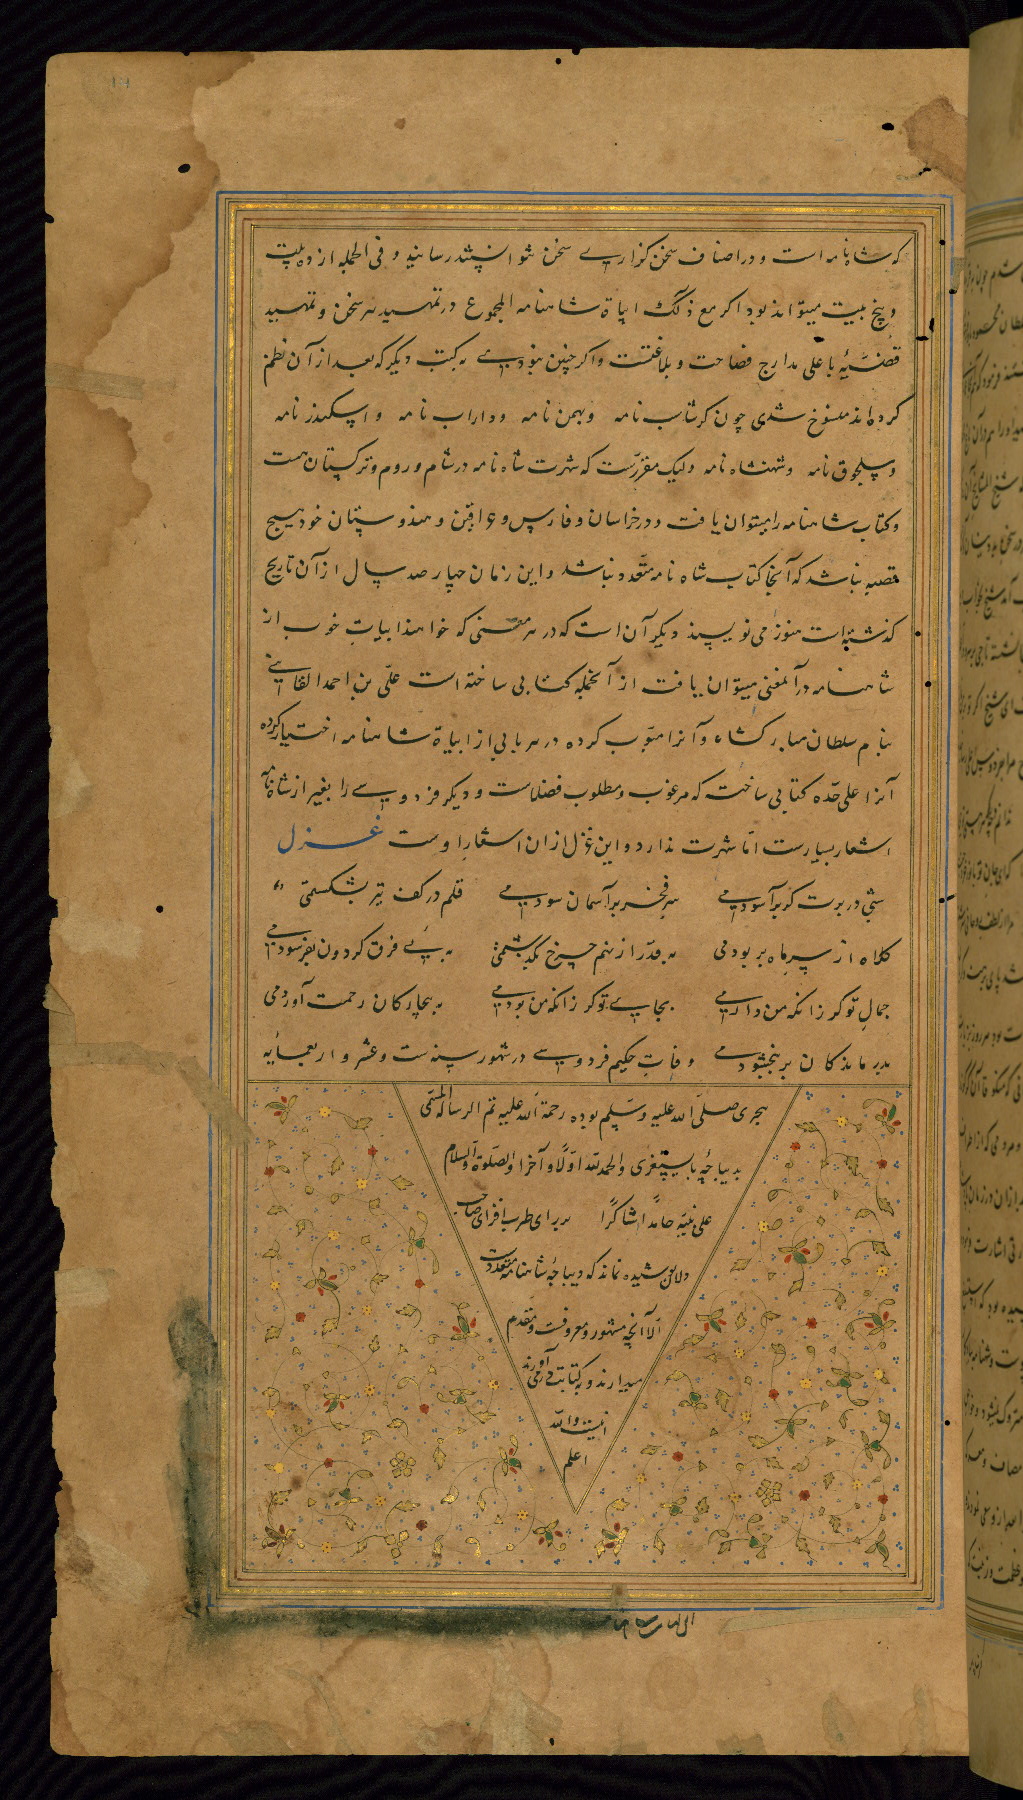 که شاه نامه است و در اصناف سخن گزاری سخن شو انشند رسانید و فی الجمله از ده بیت
و پنج بیت میتواند بود اکر مع ذلک ابیاة شاهنامه المجموع در تمهید هر سخن و تمهید
قضیّهٔ با علی مدارج فصاحت و بلاغتست واکر چنین نبودی به کتب دیکر که بعد از آن نظم
کرده اند منسوخ شدی چون کرشاسب نامه و بهمن نامه و داراب نامه و اسکندر نامه
و سلجوق نامه و شهنشاه نامه ولیک مقررست که شهرت شاه نامه در شام و روم و ترکستان هست
و کتاب شاهنامه را میتوان یافت و در خراسان و فارس و عراقین و هندوستان خود هیچ
قصبه نباشد که آنجا کتاب شاه نامه متعدد نباشد و این زمان چهار صد سال از آن تاریخ
کذشته است هنوز می نویسند دیکر آن است که در هر معنی که خواهند ابیات خوب از
شاهنامه در آنمعنی میتوان یافت از آنجمله کتابی ساخته است علی بن احمد
بنام سلطان ملکشاه و آنرا مبوّب کرده در هر بابی از ابیاة شاهنامه اختیار کرده
آنرا علی حدّه کتابی ساخت که مرغوب و مطلوب فضلاست و دیکر فردوسی را بغیر از شاه نامه
اشعار بسیارست امّا شهرت ندارد و این غزل از ان اشعار اوست غزل
شبی در برت کر برآسودمی سر فخر بر آسمان سودمی قلم در کف تیر بشکستمی
کلاه از سر ماه بربودمی به قدر از نهم چرخ بکذشتمی به پی فرق کردون بفرسودمی
جمال تو کر زانکه من دارمی بجای تو کر زانکه من بودمی به بیچارکان رحمت آوردمی
بدرماندکان بر ببخشودمی وفات حکیم فردوسی در شهور سنه ست و عشر و اربعمایه
هجری صلی الله علیه و سلم بوده رحمة الله علیه تم الرساله المسمّی
بدیباچهٔ بایسنغری والحمد لله اوّلا و آخرا والصلوة والسلام
علی نبیّه حامداً شاکرًا بر رای طرب افزای صاحب
دلان پوشیده نماند که دیباچهٔ شاهنامه متعددست
الّا آنچه مشهور و معروفست و مقدم
میدارند و به کتابت در می آورند
اینست والله
اعلم